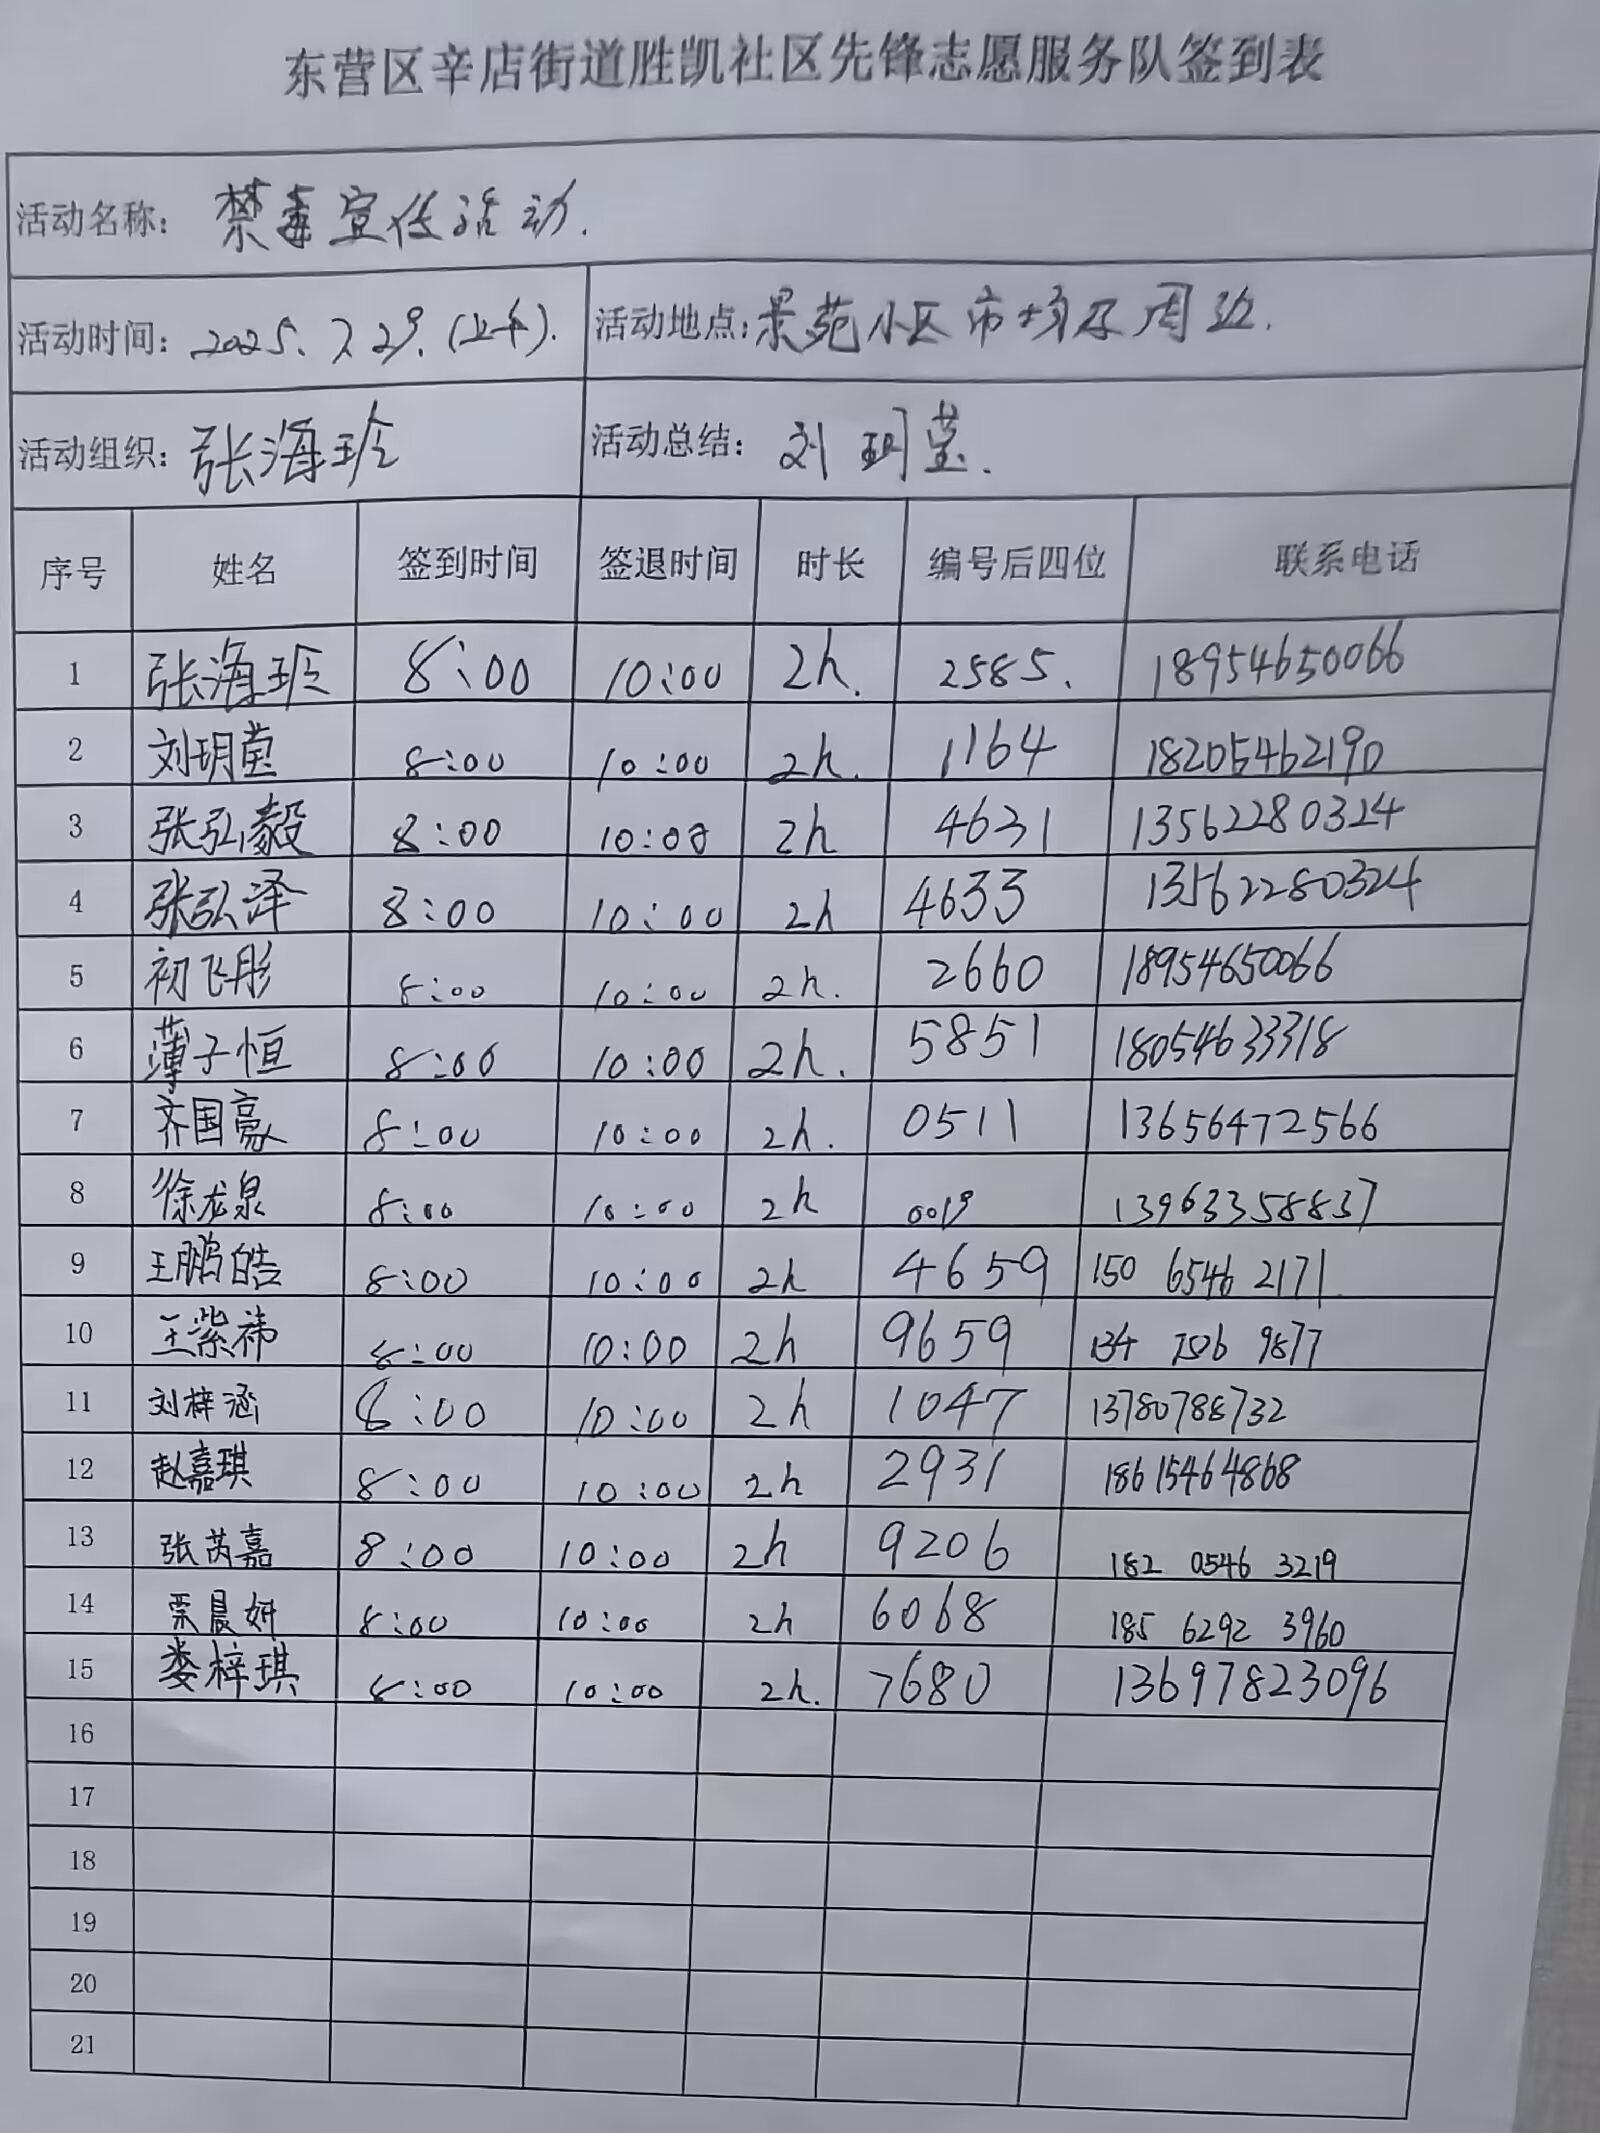 东营区辛店街道胜凯社区先锋志愿服务队签到表
活动名称: 禁毒宣传活动.
活动时间: 2025.7.29.(上午). 活动地点: 景苑小区市场及周边.
活动组织: 张海玲 活动总结: 刘玥莹.
序号 姓名 签到时间 签退时间 时长 编号后四位 联系电话
1 张海玲 8:00 10:00 2h. 2585. 18954650066
2 刘玥莹 8:00 10:00 2h. 1164 18205462190
3 张弘毅 8:00 10:00 2h 4631 13562280324
4 张弘泽 8:00 10:00 2h 4633 13562280324
5 初飞彤 8:00 10:00 2h. 2660 18954650066
6 薄子恒 8:00 10:00 2h. 5851 18054633318
7 齐国豪 8:00 10:00 2h. 0511 13656472566
8 徐龙泉 8:00 10:00 2h 0019 13963358837
9 王鹏皓 8:00 10:00 2h 4659 150 6546 2171
10 王紫祎 8:00 10:00 2h 9659 9877
11 刘梓涵 8:00 10:00 2h 1047 13780788732
12 赵嘉琪 8:00 10:00 2h 2931 18615464868
13 张芮嘉 8:00 10:00 2h 9206 182 0546 3219
14 晨妍 8:00 10:00 2h 6068 185 6292 3960
15 娄梓琪 8:00 10:00 2h. 7680 13697823096
16
17
18
19
20
21